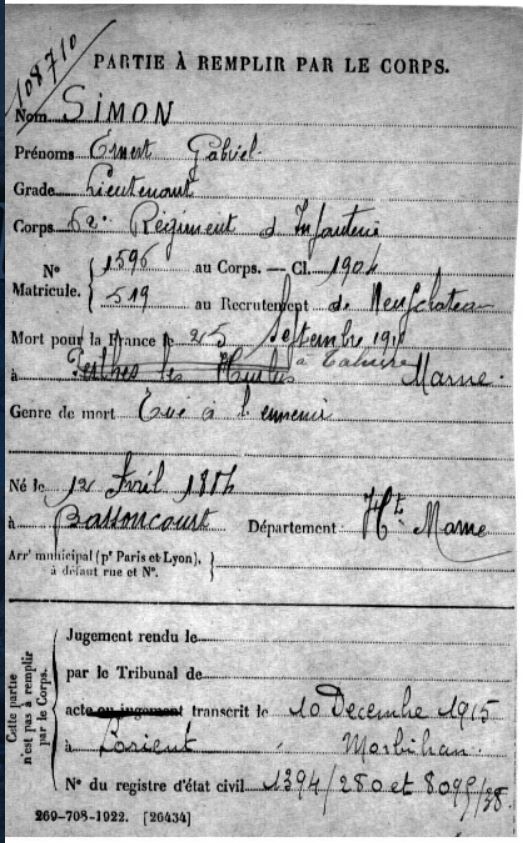 108710
PARTIE À REMPLIR PAR LE CORPS.
Nom SIMON
Prénoms Ernest Gabriel
Grade Lieutenant
Corps 62e Régiment d'Infanterie
N° Matricule. { 1596 au Corps. — Cl. 1904
519 au Recrutement de Neufchateau
Mort pour la France le 25 Septembre 1915
à Perthes les Hurlus à Tahure Marne
Genre de mort Tué à l'ennemi
Né le 12 Avril 1884
à Bassoncourt Département Hte Marne
Arrt municipal (pr Paris et Lyon), à défaut rue et N°. }
Cette partie n'est pas à remplir par le Corps.
Jugement rendu le
par le Tribunal de
acte ou jugement transcrit le 10 Decembre 1915
à Lorient Morbihan.
N° du registre d'état civil 1394/280 et 8095/38
269-708-1922. [26434]